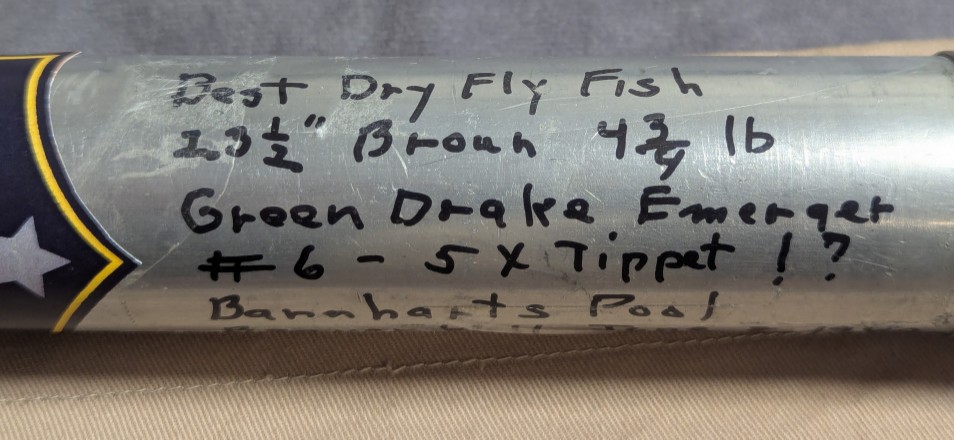 Best Dry Fly Fish
23 1/2" Brown 4 3/4 lb
Green Drake Emerger
#6 - 5X Tippet !?
Barnharts Pool